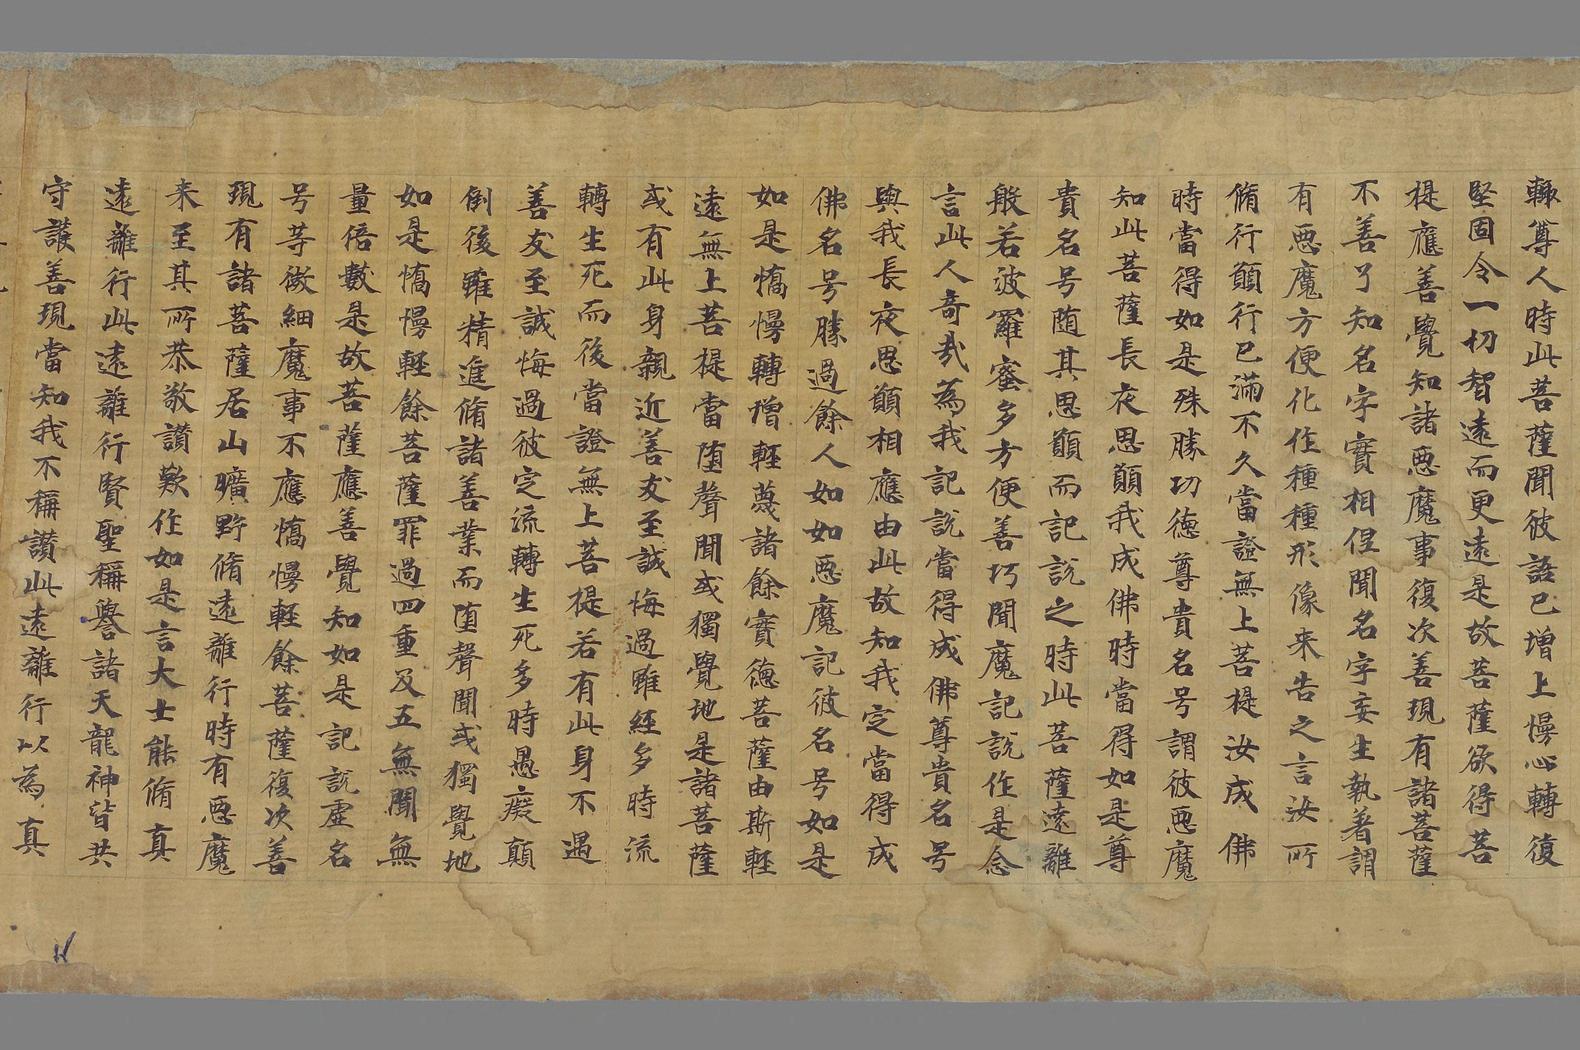 輙尊人時此菩薩聞彼語已增上慢心轉復
堅固令一切智遠而更遠是故菩薩欲得菩
提應善覺知諸惡魔事復次善現有諸菩薩
不善了知名字實相但聞名字妄生執著謂
有惡魔方便化作種種形像来告之言汝所
脩行願行已滿不久當證無上菩提汝成佛
時當得如是殊勝功德尊貴名号謂彼惡魔
知此菩薩長夜思願我成佛時當得如是尊
貴名号随其思願而記說之時此菩薩遠離
般若波羅蜜多方便善巧聞魔記說作是念
言此人奇哉為我記說當得成佛尊貴名号
與我長夜思願相應由此故知我定當得成
佛名号勝過餘人如如惡魔記彼名号如是
如是憍慢轉增輕蔑諸餘實德菩薩由斯輕
遠無上菩提當堕聲聞或獨覺地是諸菩薩
或有此身親近善友至誠悔過雖經多時流
轉生死而後當證無上菩提若有此身不遇
善友至誠悔過彼定流轉生死多時愚癡顛
倒後雖精進脩諸善業而堕聲聞或獨覺地
如是憍慢輕餘菩薩罪過四重及五無間無
量倍數是故菩薩應善覺知如是記說虛名
号等微細魔事不應憍慢輕餘菩薩復次善
現有諸菩薩居山曠野脩遠離行時有惡魔
来至其所恭敬讚歎作如是言大士能脩真
遠離行此遠離行賢聖稱譽諸天龍神皆共
守護善現當知我不稱讚此遠離行以為真